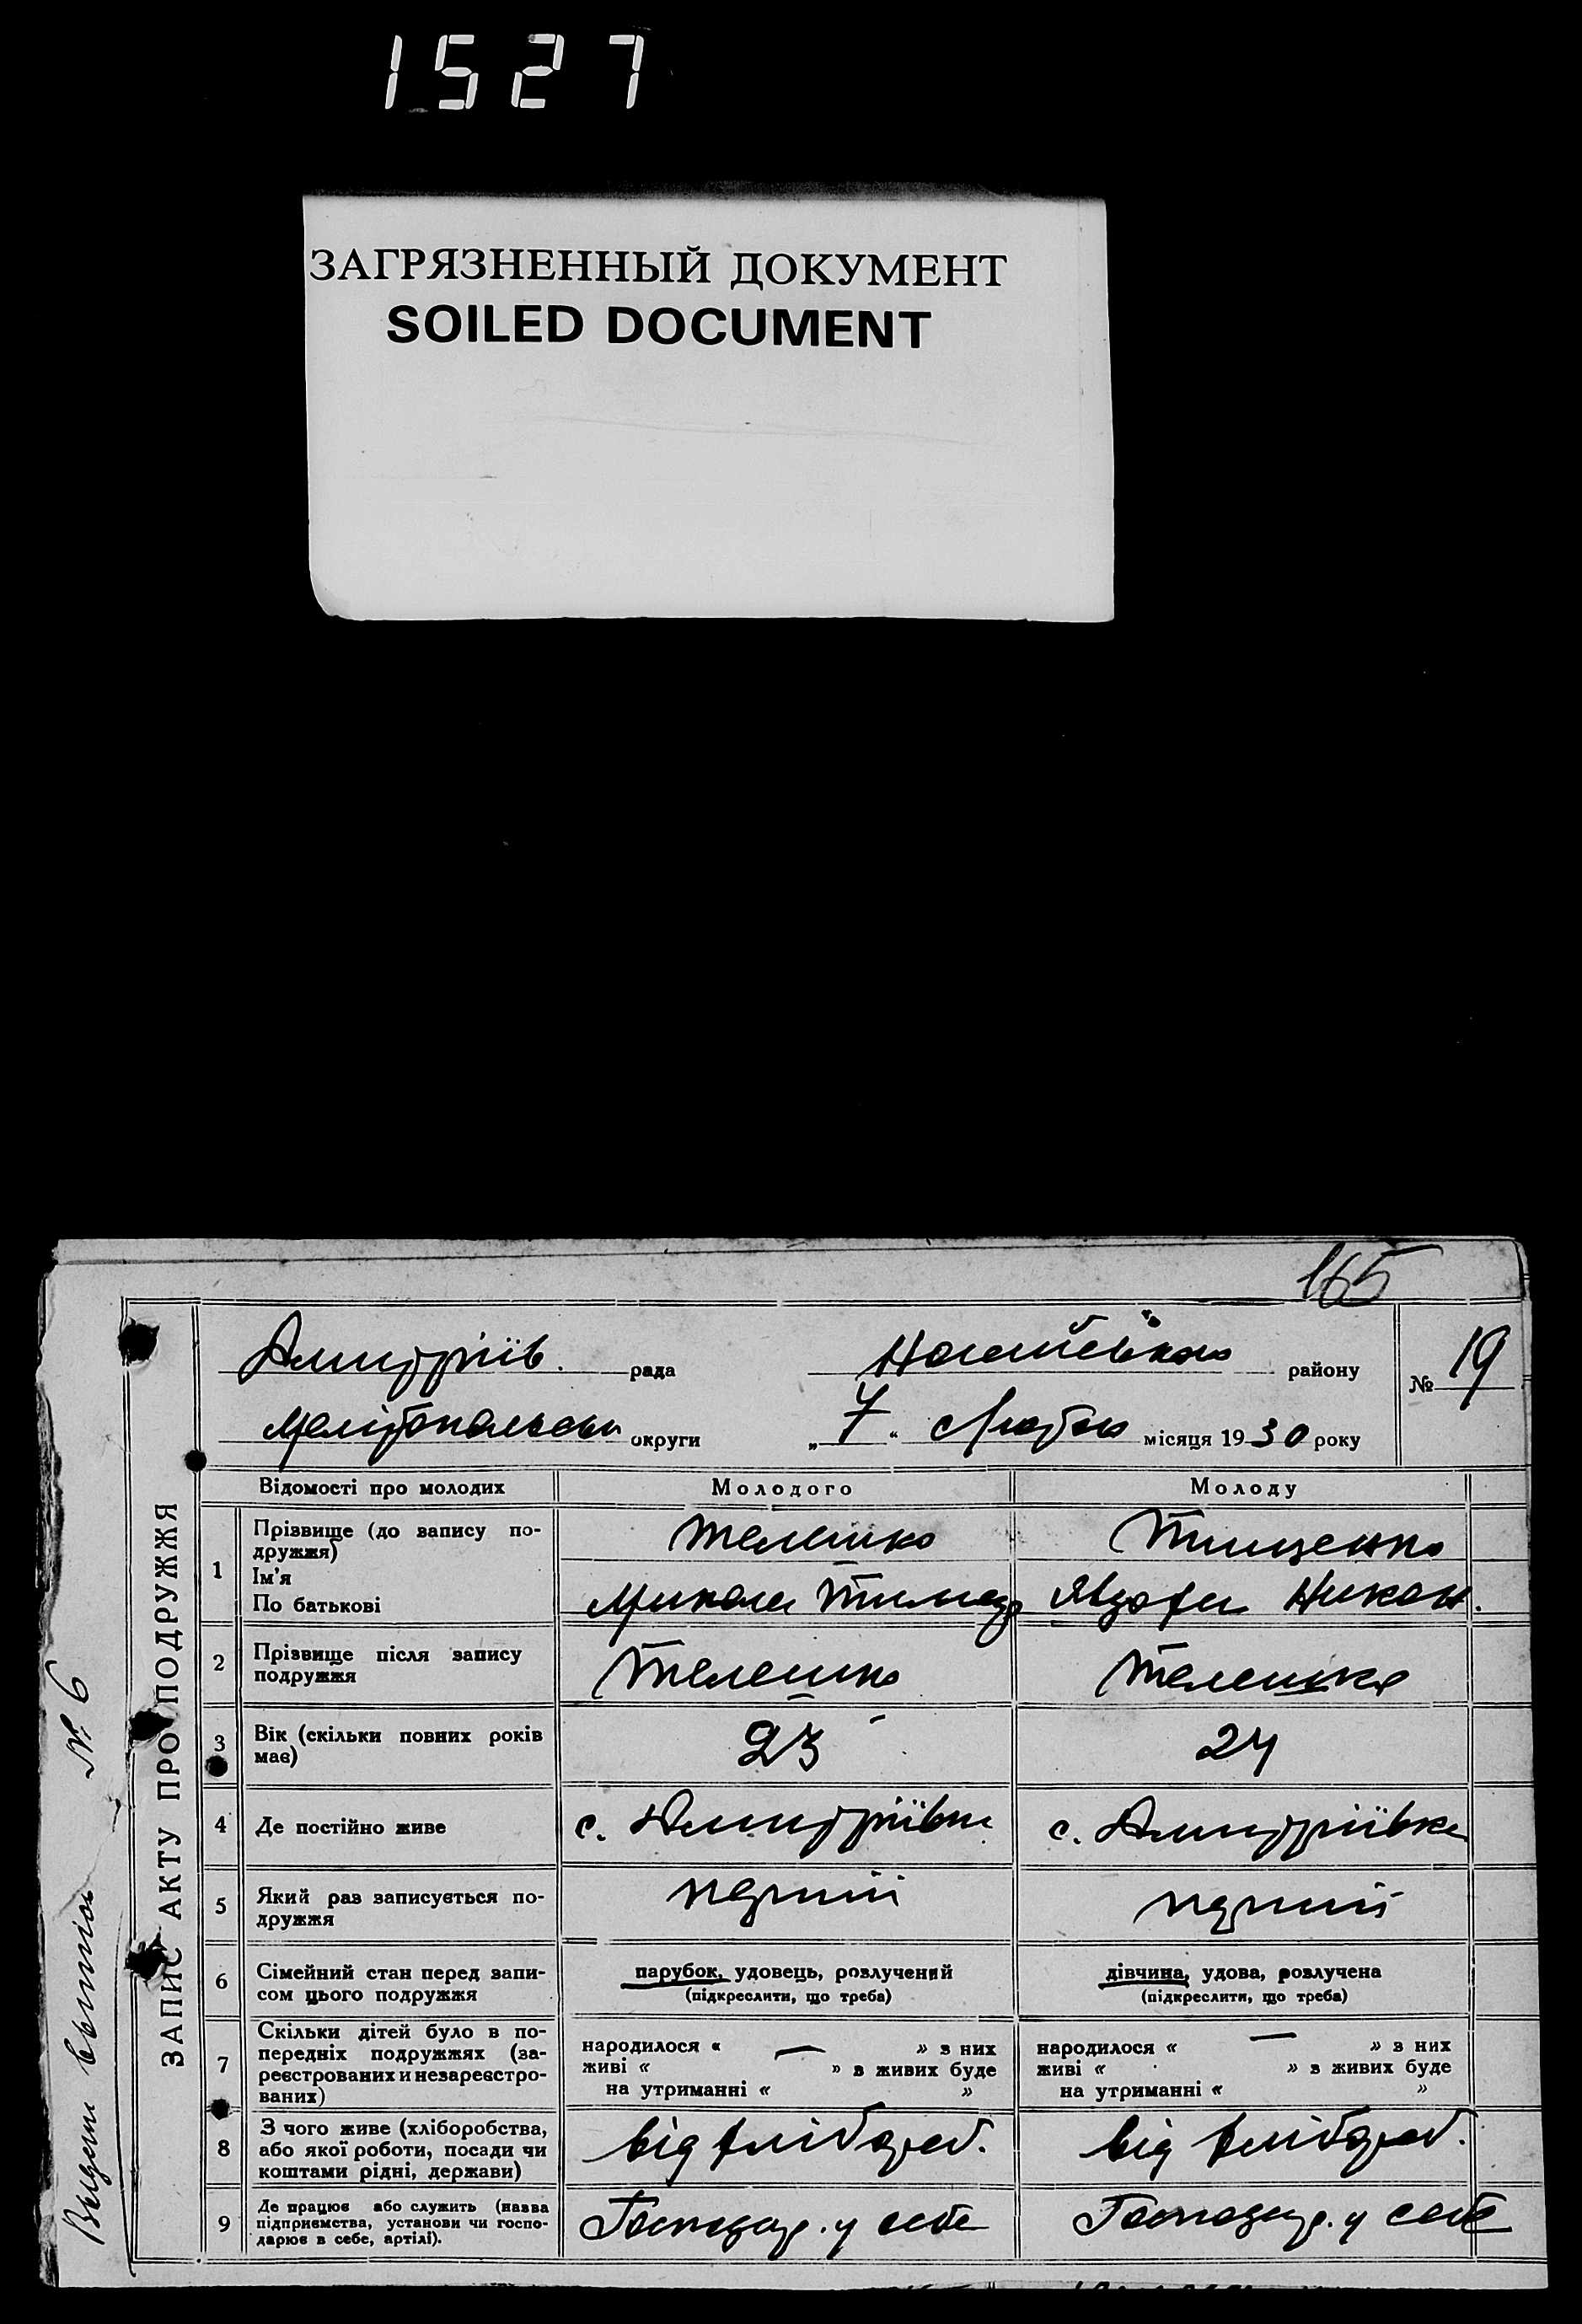 1527
ЗАГРЯЗНЕННЫЙ ДОКУМЕНТ
SOILED DOCUMENT
165
Дмитріїв. рада Ногайського району № 19
Мелітопольськ округи „ 7 " Лютого місяця 1930 року
ЗАПИС АКТУ ПРО ПОДРУЖЖЯ
№ 6
Відомості про молодих Молодого Молоду
1 Прізвище (до запису по-
дружжя)
Ім'я
По батькові
Телешко Тищенко
Микола Тимоф Явдоха Никон.
2 Прізвище після запису
подружжя
Телешко Телешко
3 Вік (скільки повних років
має)
23 24
4 Де постійно живе с. Дмитріївка с. Дмитріївка
5 Який раз записується по-
дружжя
перший перший
6 Сімейний стан перед запи-
сом цього подружжя
парубок, удовець, розлучений
(підкреслити, що треба)
дівчина, удова, розлучена
(підкреслити, що треба)
7 Скільки дітей було в по-
передніх подружжях (за-
реєстрованих и незареєстро-
ваних)
народилося « — » з них
живі « » в живих буде
на утриманні « »
народилося « — » з них
живі « » в живих буде
на утриманні « »
8 З чого живе (хліборобства,
або якої роботи, посади чи
коштами рідні, держави)
від хлібороб. від хлібороб.
9 Де працює або служить (назва
підприємства, установи чи госпо-
дарює в себе, артілі).
Господар. у себе Господар. у себе